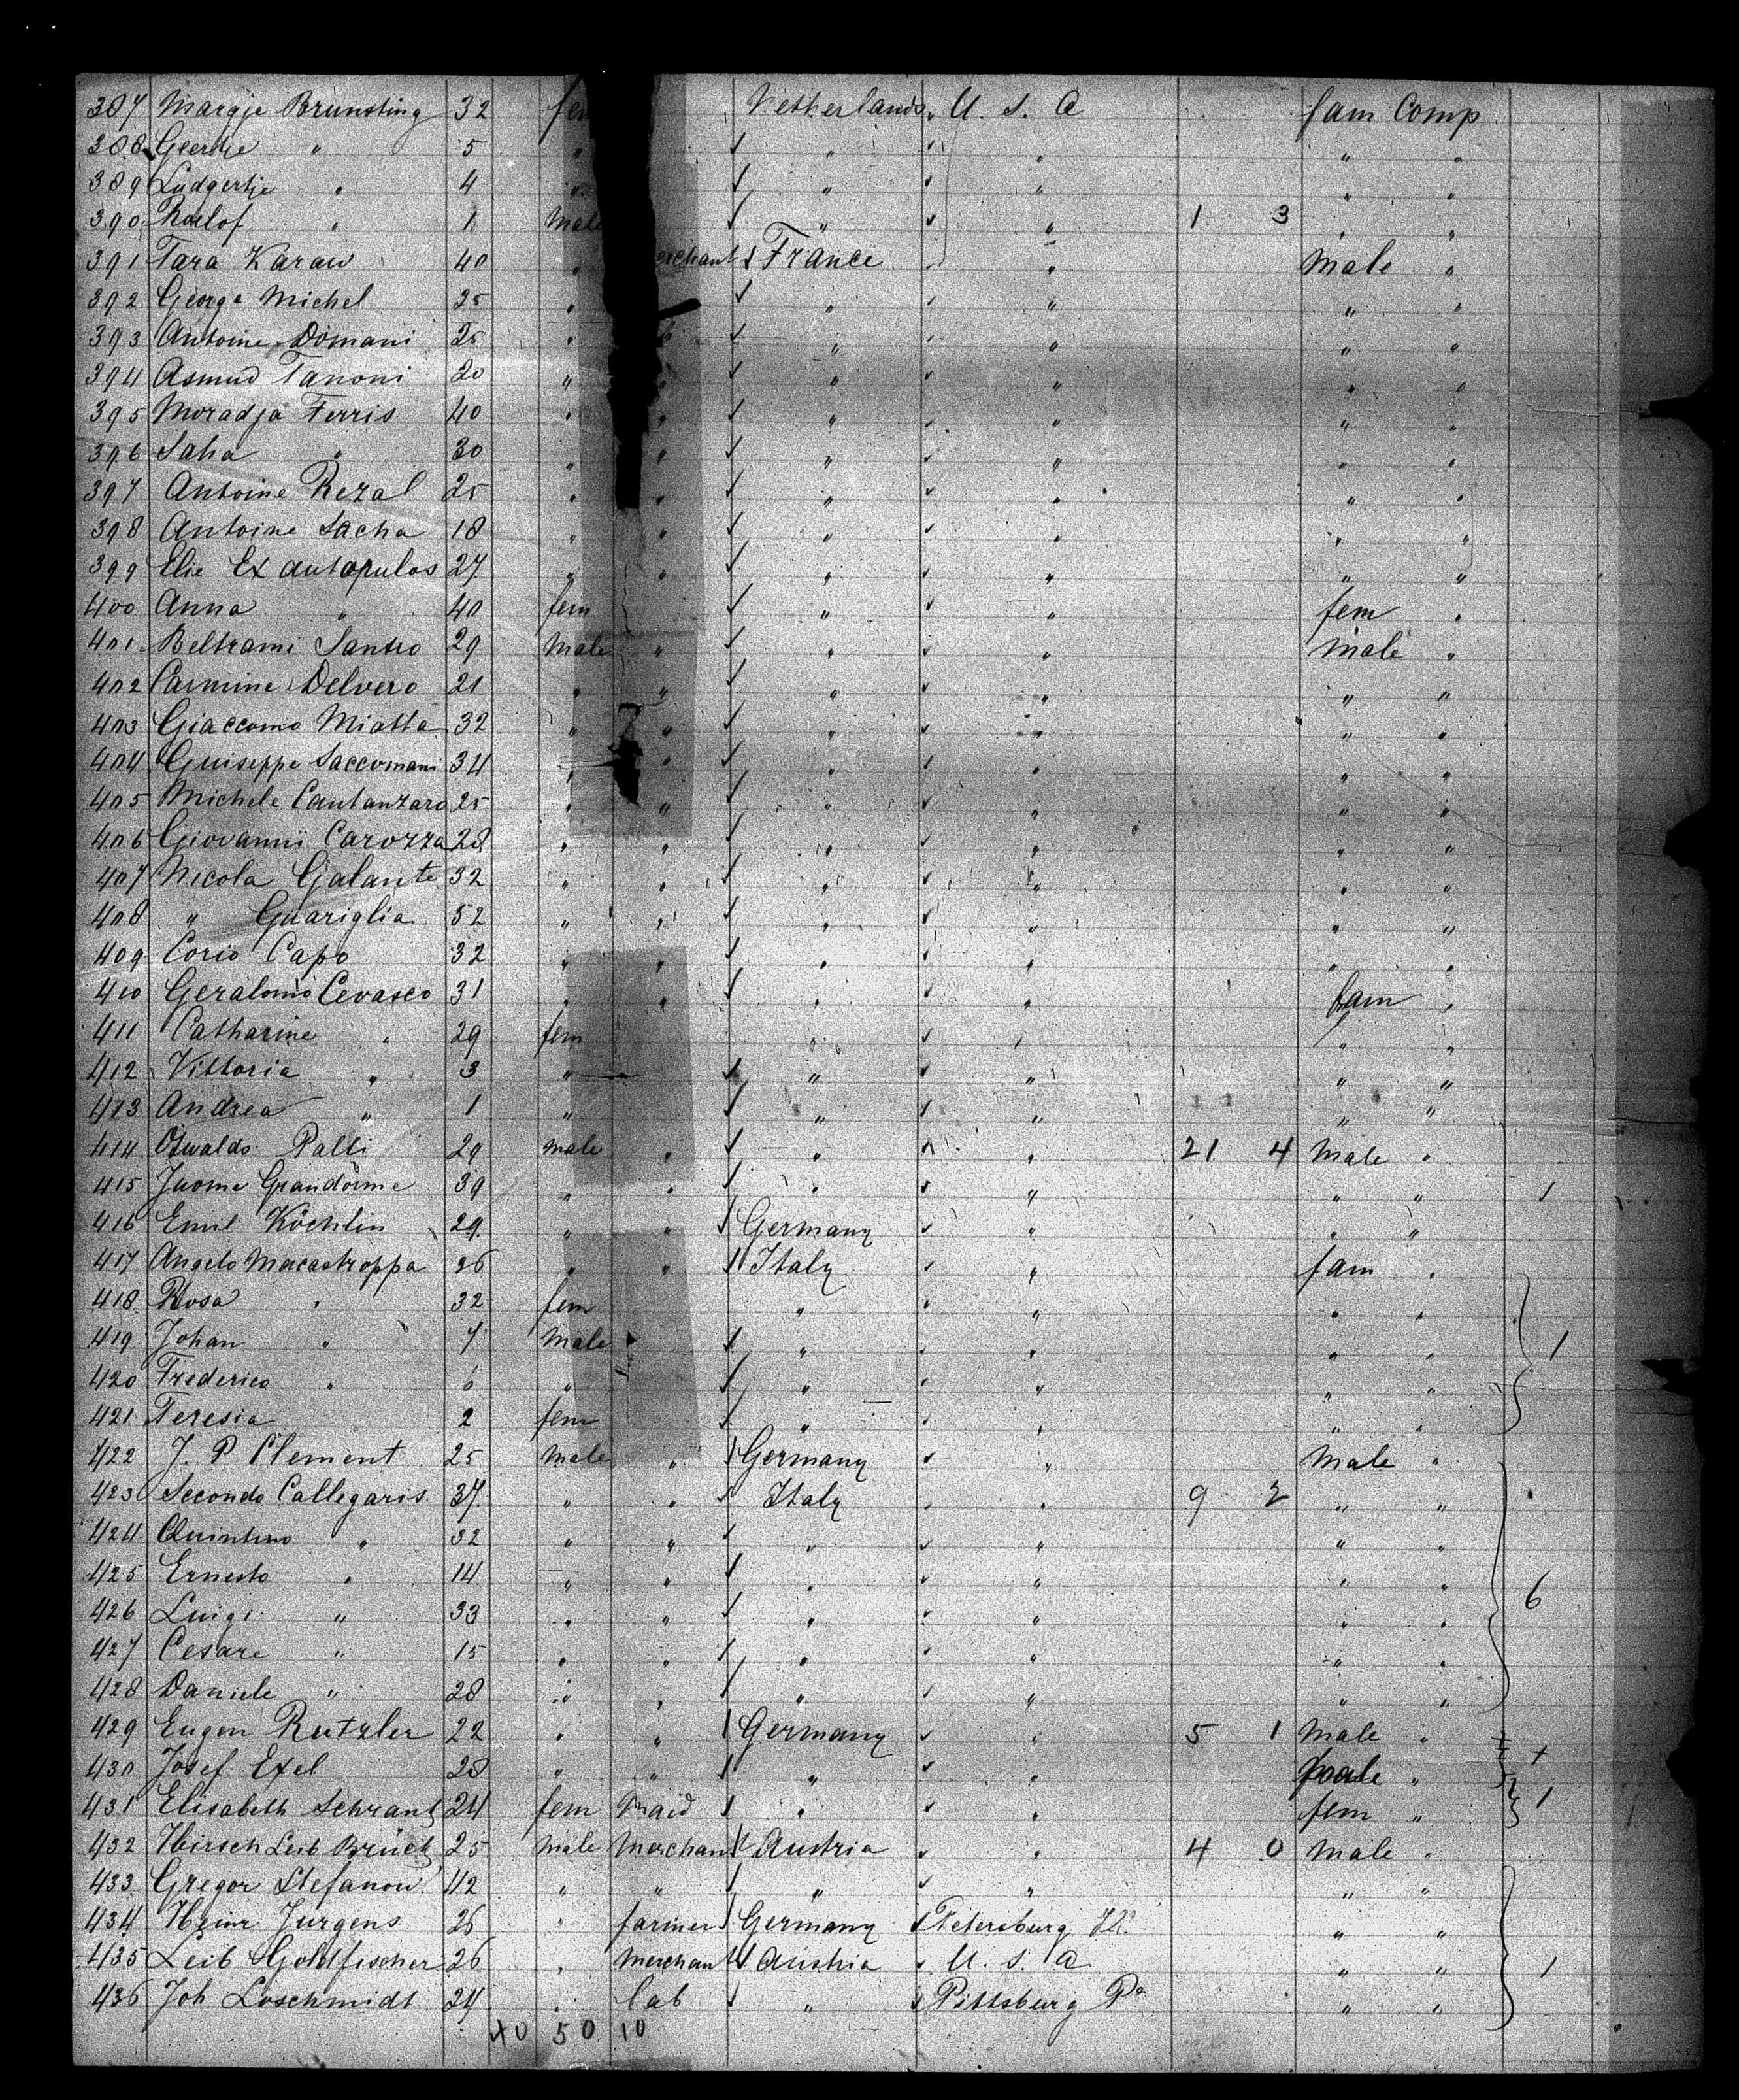 387 Margje Brunsting 32 fem Netherlands U. S. A fam Comp
388 Geertje " 5 " " " " "
389 Ludgertje " 4 " " " " "
390 Roelof " 1 Male " " 1 3 " "
391 Tara Karaw 40 " erchant France " Male "
392 George Michel 25 " " " " "
393 Antoine Domani 25 " " " " " "
394 Asmud Tanoni 20 " " " " " "
395 Moradja Ferris 40 " " " " " "
396 Saha " 30 " " " " " "
397 Antoine Rezal 25 " " " " " "
398 Antoine Sacha 18 " " " " " "
399 Elie Exautopulos 27 " " " " " "
400 Anna " 40 fem " " fem "
401 Beltrami Santro 29 Male " " " male "
402 Carmine Delvero 21 " " " " " "
403 Giaccomo Miatta 32 " " " " " "
404 Guiseppe Saccomani 34 " " " " " "
405 Michele Cantanzaro 25 " " " " " "
406 Giovanni Carozza 28 " " " " " "
407 Nicola Galante 32 " " " " " "
408 " Guariglia 52 " " " " " "
409 Corio Capo 32 " " " " " "
410 Geralomo Cevasco 31 " " " " fam "
411 Catharine " 29 fem " " " "
412 Vittoria " 3 " " " " "
413 Andrea " 1 " " " " "
414 Oswaldo Palli 29 male " " " 21 4 Male "
415 Grandoime 39 " " " " " " 1
416 Emil Köchlin 29 " " Germany " " "
417 Angelo Macastroppa 26 " " Italy " fam "
418 Rosa " 32 fem " " " "
419 Johan " 7 Male " " " " 1
420 Frederico " 6 " " " " "
421 Teresia 2 fem " " " "
422 J. P Clement 25 Male " Germany " Male "
423 Secondo Callegaris 37 " " Italy " 9 2 " "
424 Quintino " 32 " " " " " "
425 Ernesto " 14 " " " " " "
426 Luigi " 33 " " " " " " 6
427 Cesare " 15 " " " " " "
428 Daniele " 28 " " " " " "
429 Eugen Rutzler 22 " " Germany " 5 1 Male "
430 Josef Exel 28 " " " " male " +
431 Elisabeth Schrantz 24 fem Maid " " fem " 1
432 Hirsch Leib Brück 25 male Merchant Austria " 4 0 Male "
433 Gregor Stefanow 42 " " " " " "
434 Heinr Jurgens 26 " farmer Germany Petersburg Ill. " "
435 Leib Goldfischer 26 " Merchant Austria U. S. A " " 1
436 Joh Loschmidt 24 " lab " Pittsburg Pa " "
40 50 10